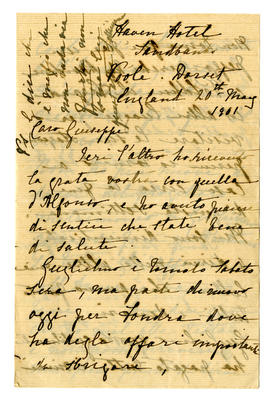 Haven Hotel
Sandbanks
Poole. Dorset
England 20th May
1901
Caro Giuseppe
Ieri l'altro ho ricevuto
la grata vostra con quella
d'Alfonso, e ho avuto piacere
di sentire che state bene
di salute.
Guglielmo è tornato sabato
sera, ma parte di nuovo
oggi per Londra dove
ha degli affari importanti
da sbrigare,